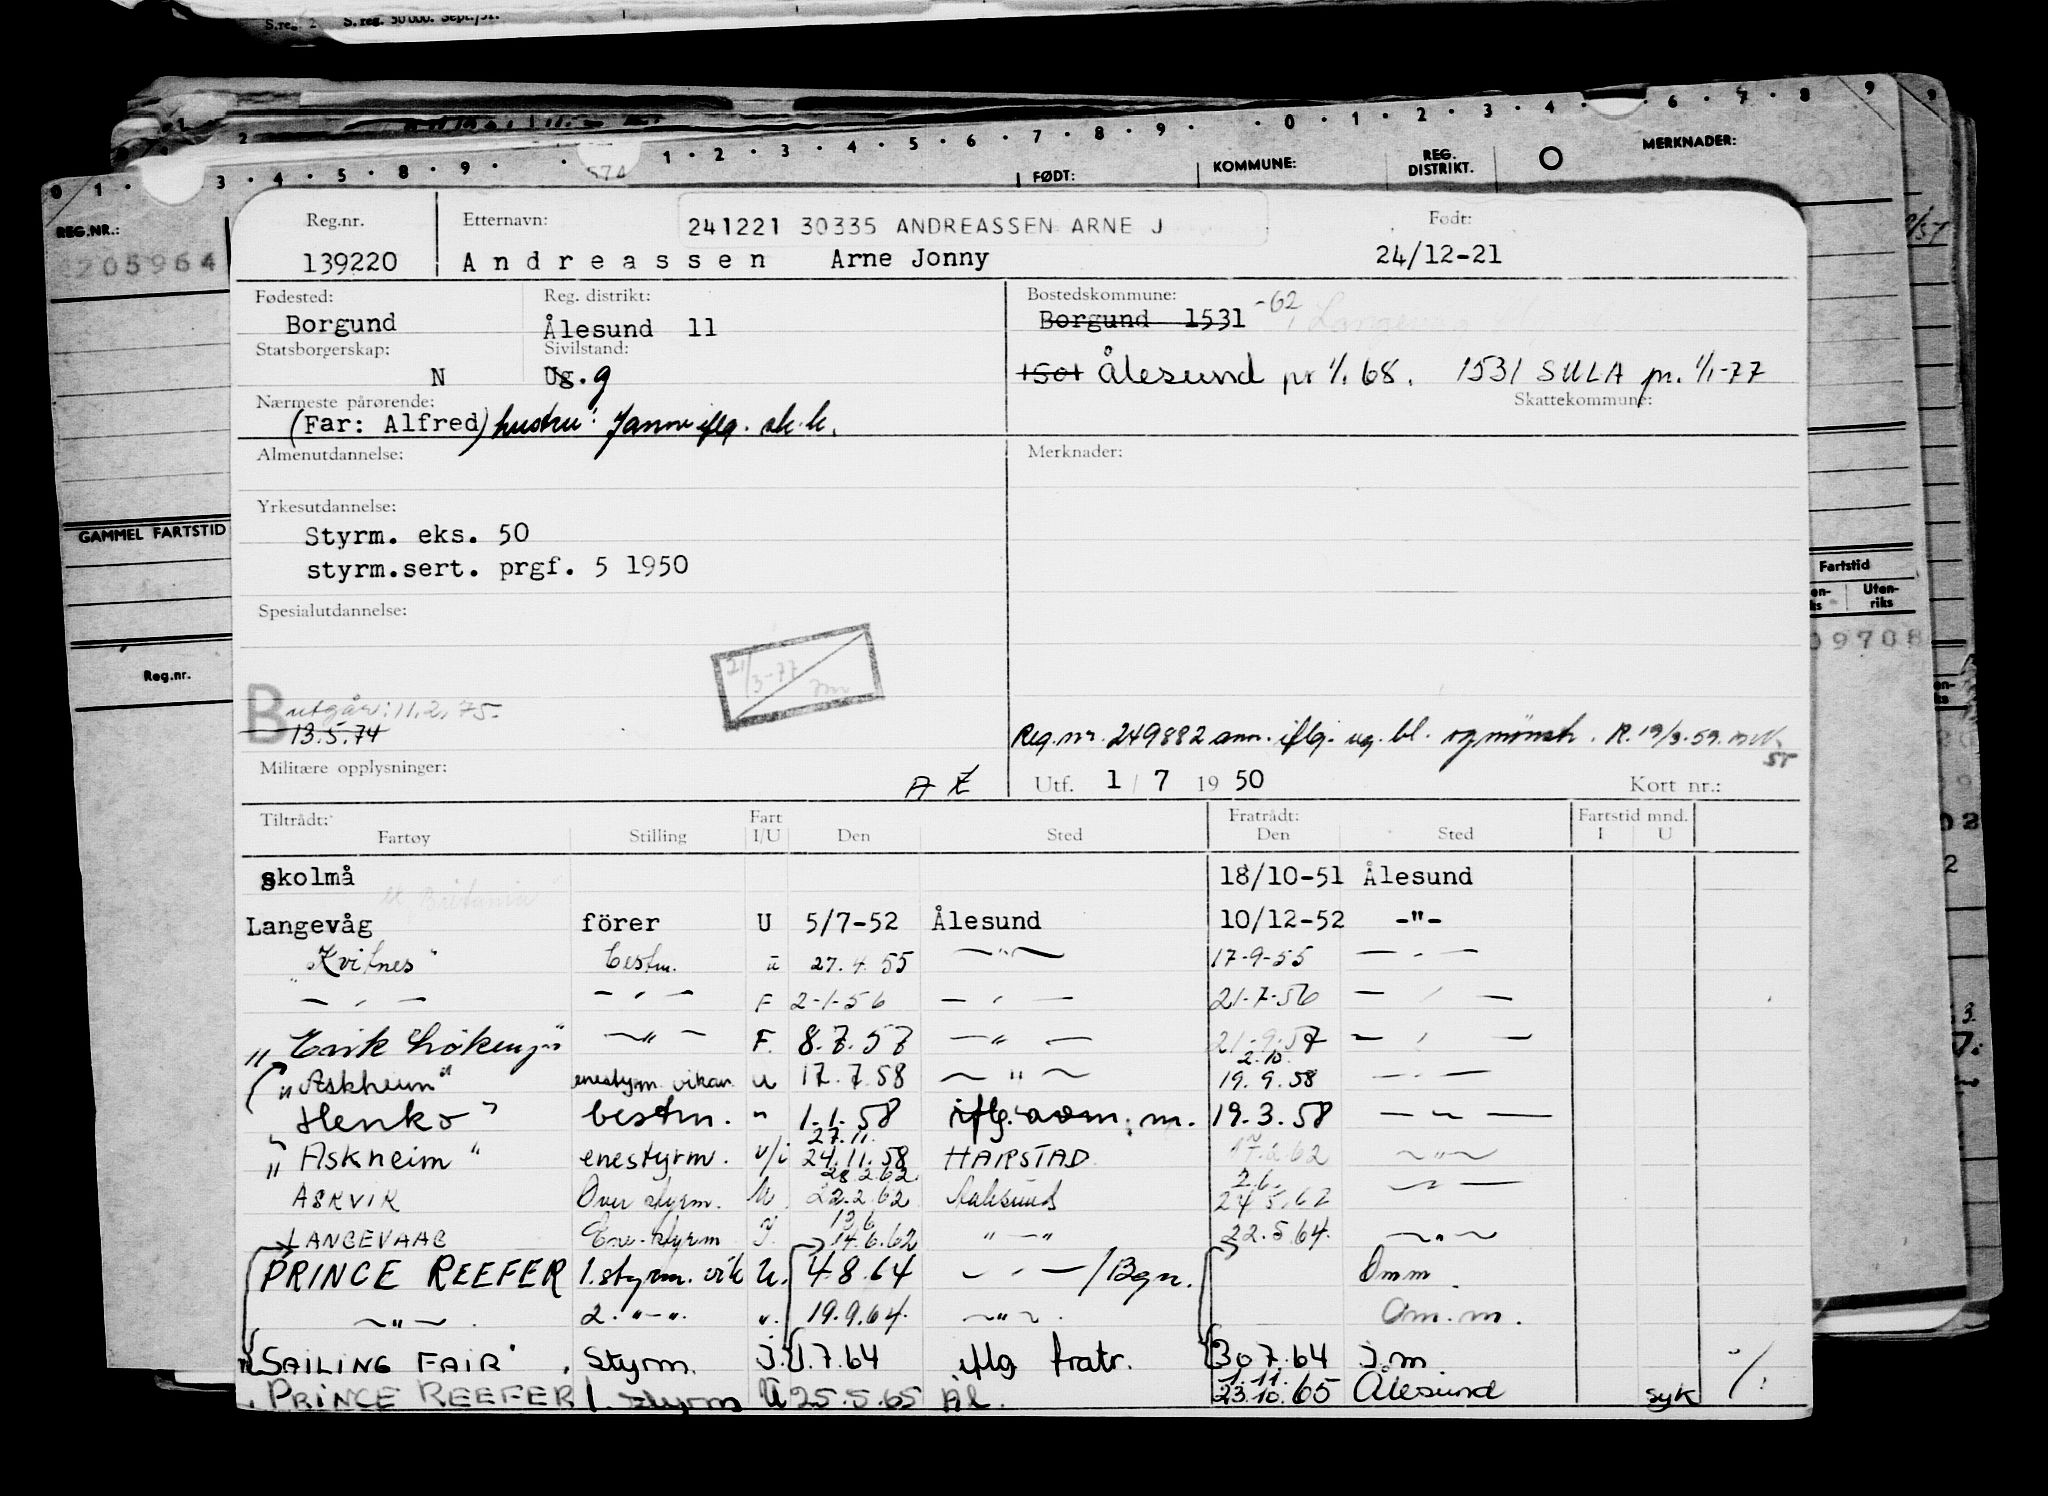 S.reg. 50 000. Sept./51.
1 2 3 4 5 6 7 8 9 0 1 2 3 4 6 7 8 9
MERKNADER:
0 1 3 4 5 8 9 1 2 3 4 5 6 7 8 9
FØDT: KOMMUNE: REG. DISTRIKT.
REG.NR.:
205964
GAMMEL FARTSTID
Reg.nr.
Fartstid
Uten-
riks
09708
Reg.nr. Etternavn: 241221 30335 ANDREASSEN ARNE J Født:
139220 Andreassen Arne Jonny 24/12-21
Fødested: Reg. distrikt: Bostedskommune:
Borgund Ålesund 11 Borgund 1531 -62
Statsborgerskap: Sivilstand:
N Ug. g 1501 Ålesund pr 1/1 68. 1531 SULA pr. 1/1-77
Nærmeste pårørende: Skattekommune:
(Far: Alfred) hustru: iflg. sk.k.
Almenutdannelse: Merknader:
Yrkesutdannelse:
Styrm. eks. 50
styrm.sert. prgf. 5 1950
Spesialutdannelse:
21/3-77
B utgår: 11.2.75.
13.5.74
Reg.nr. 249882 ann. iflg. ug. bl. og mønstr. R. 19/3.59.
Militære opplysninger: A Utf. 1/7 1950 Kort nr.:
Tiltrådt: Fart Fratrådt: Fartstid mnd.
Fartøy Stilling I/U Den Sted Den Sted I U
Skolmå 18/10-51 Ålesund
Langevåg förer U 5/7-52 Ålesund 10/12-52 -"-
"Kvitnes" bestm. u 27.4.55 —"— 17-9-55 — " —
— " — — " — F 2-1-56 — " — 21-7-56 — " —
— " — F. 8.7.57 — " — 21.9.57 — " —
2.10.
"Askheim" enestyrm. vikar u 17.7.58 — " — 19.9.58 — " —
"Henko" bestm. " 1.1.58 iflg. m. 19.3.58 — " —
27.11.
"Askheim" enestyrm. u/i 24.11.58 HARSTAD 17.2.62 — " —
28.2.62 2.6.
ASKVIK Over styrm. U 22.2.62 Aalesund 24.5.62 — " —
13.6
LANGEVAAG Ene-styrm I. 14.6.62 " — " 22.5.64. — " —
PRINCE REEFER 1. styrm. vik U. 4.8.64 — " — /Bgn. Omm.
— " — . 2. "—". u. 19.9.64. — " — . Om.m.
"SAILING FAIR" Styrm. I. 1.7.64 iflg fratr. 30.7.64 I.m
1.11.
PRINCE REEFER 1. styrm U 25.5.65 Ål. 23.10.65 Ålesund syk